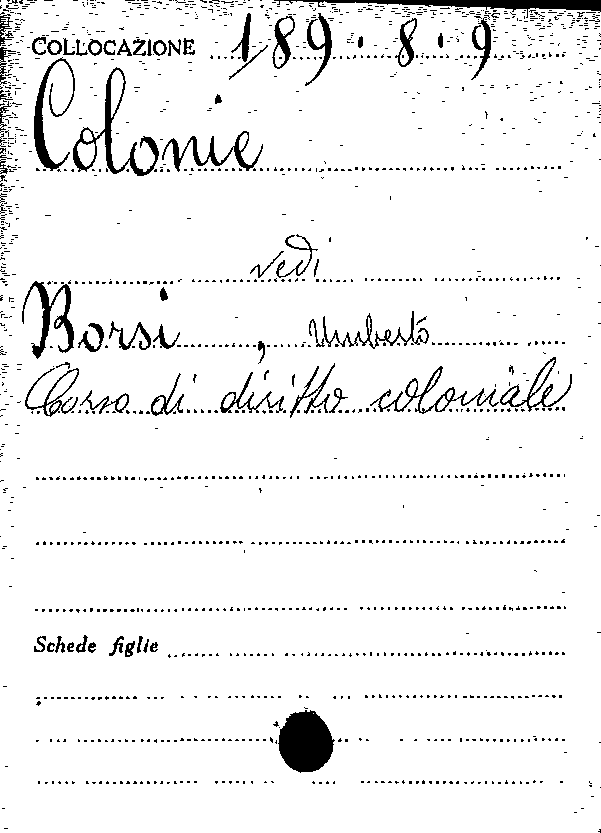 COLLOCAZIONE 189.8.9
Colonie
vedi
Borsi, Umberto
Corso di diritto coloniale
Schede figlie